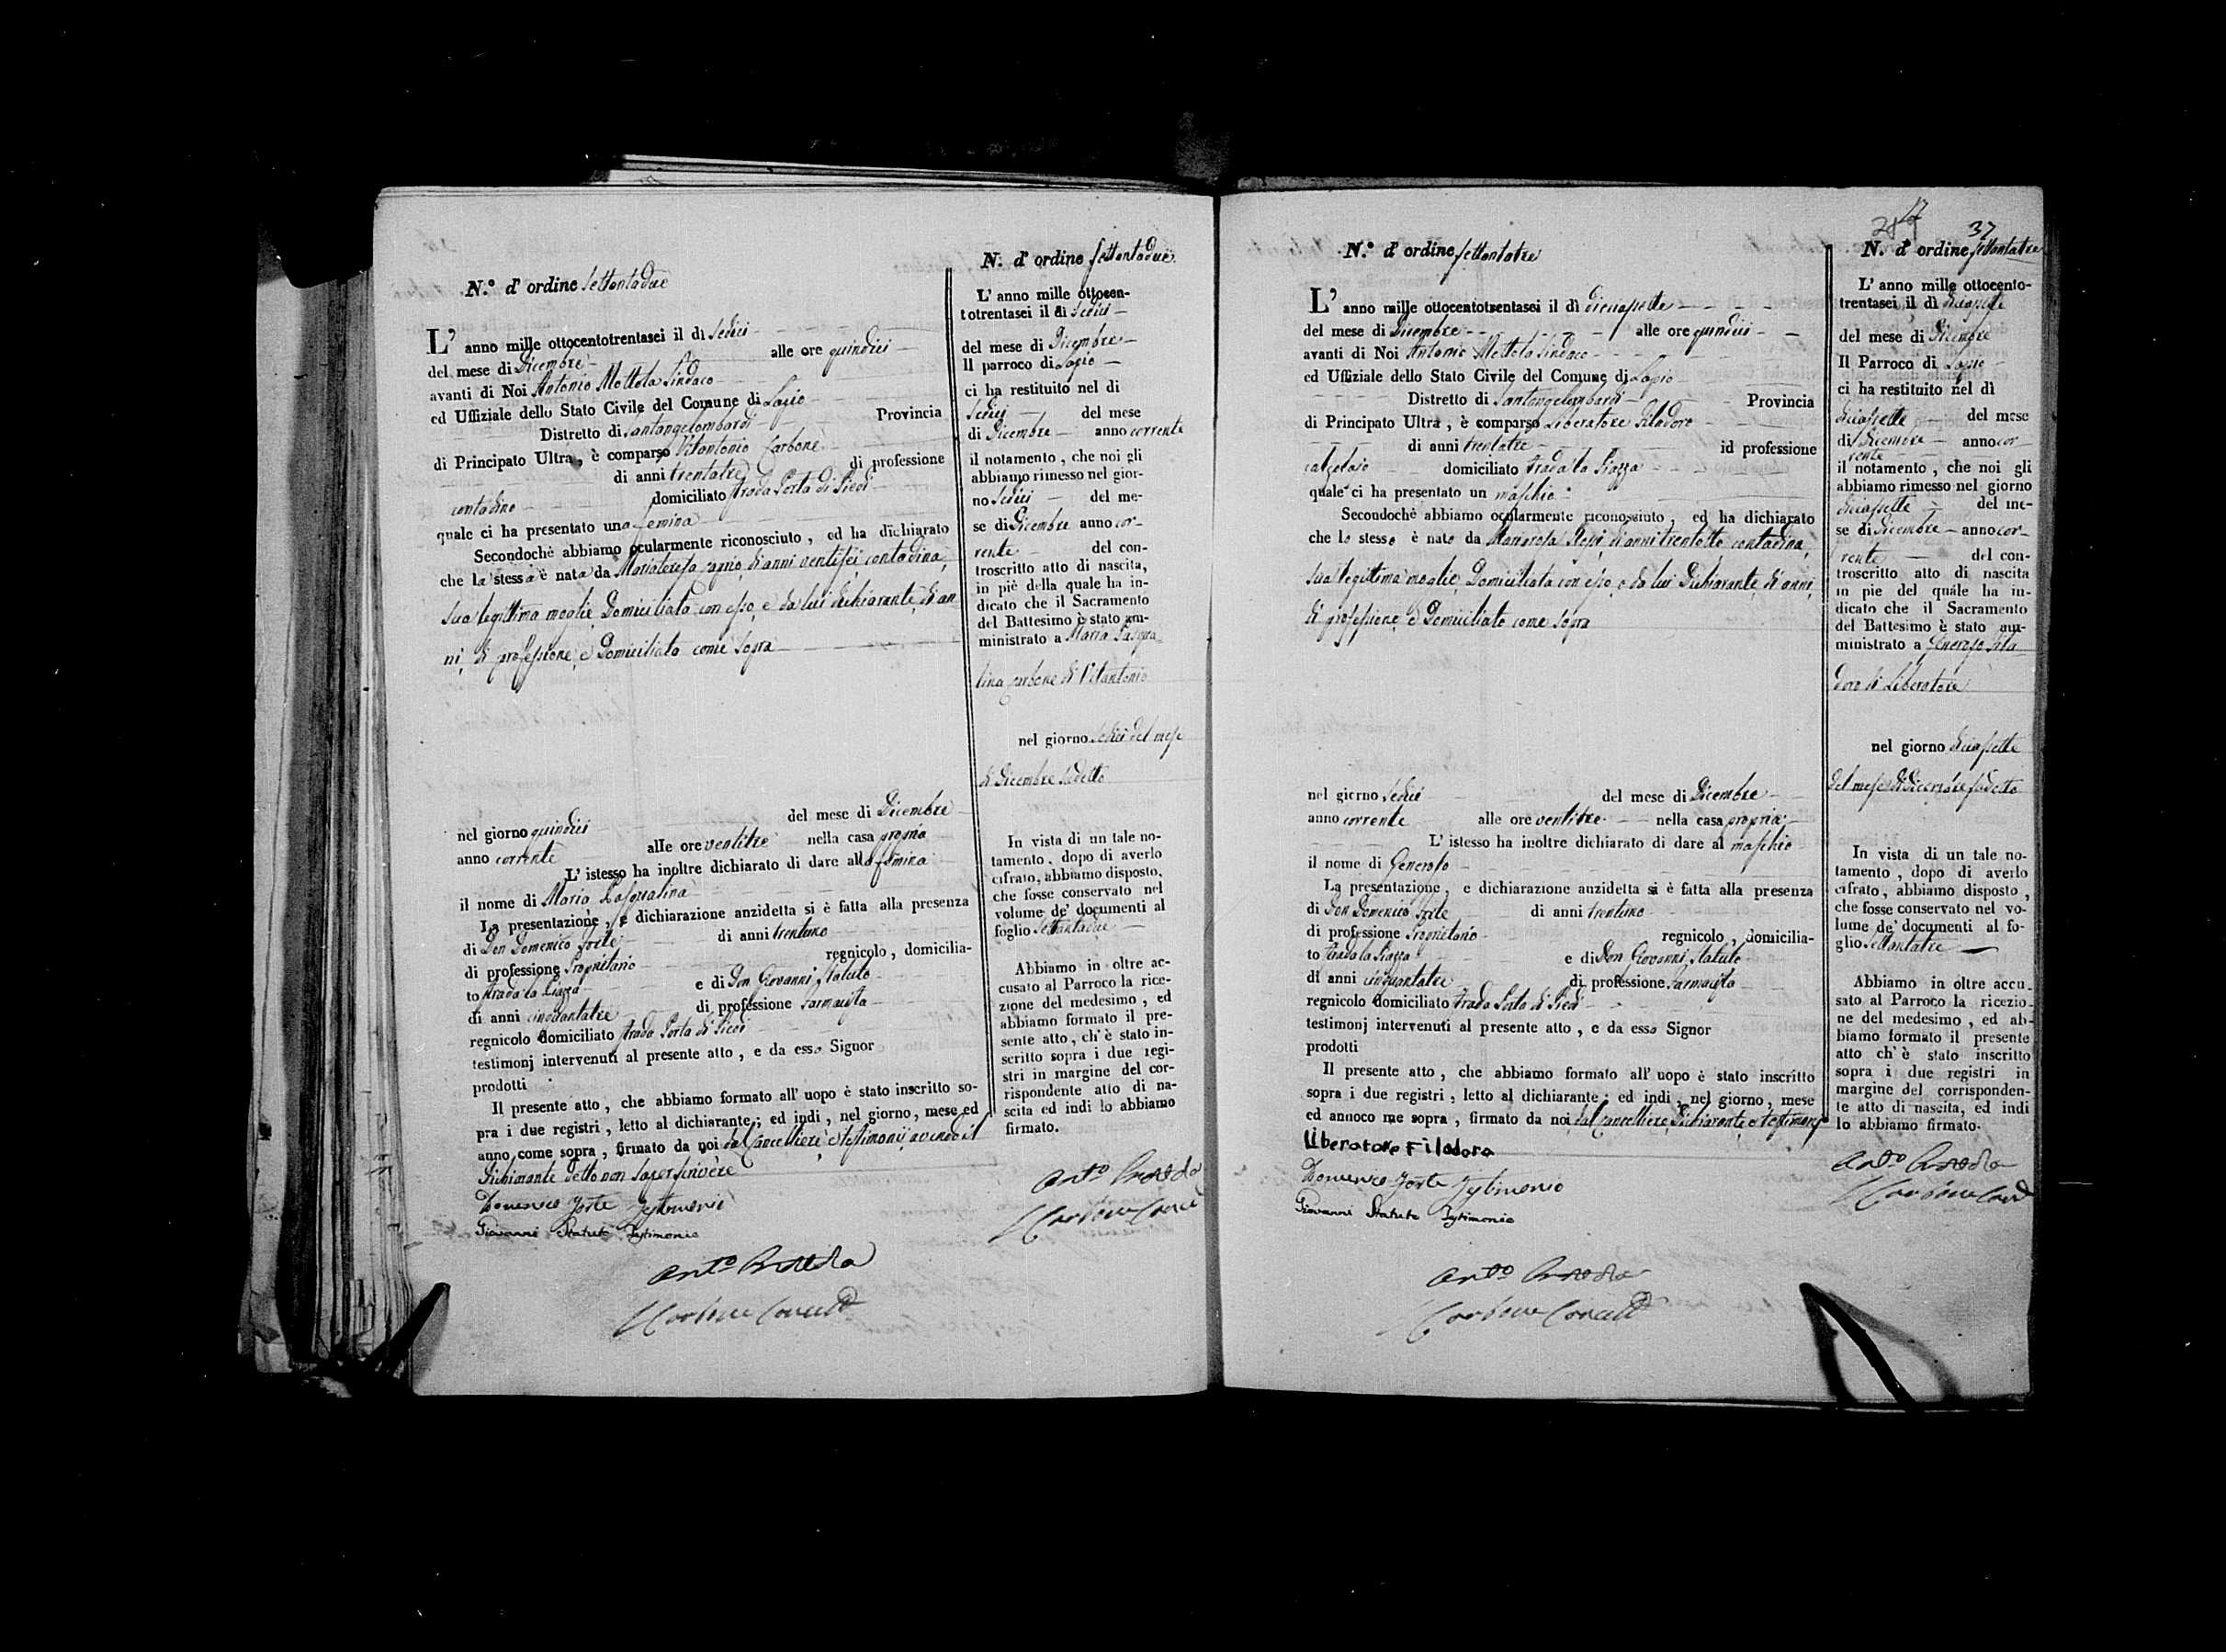 N.° d' ordine Settantadue
L' anno mille ottocentotrentasei il dì Sedici
del mese di Dicembre alle ore quindici
avanti di Noi Antonio Mottola Sindaco
ed Uffiziale dello Stato Civile del Comune di Lapio
Distretto di Santangelombardi Provincia
di Principato Ultra, è comparso Vitantonio Carbone
di anni trentatre di professione
contadino domiciliato Strada Porta di Piedi
quale ci ha presentato una femina
Secondochè abbiamo ocularmente riconosciuto, ed ha dichiarato
che la stessa è nata da Mariateresa di anni ventisei, contadina,
sua legittima moglie, Domiciliata con esso, e da lui dichiarante, di an
ni, di professione, e Domiciliato come sopra
nel giorno quindici del mese di Dicembre
anno corrente alle ore ventitre nella casa propria
L' istesso ha inoltre dichiarato di dare alla femina
il nome di Maria Pasqualina
La presentazione, e dichiarazione anzidetta si è fatta alla presenza
di Don Domenico Forte di anni trentuno
di professione Proprietario regnicolo, domicilia-
to Strada la Piazza e di Don Giovanni Statuto
di anni cinquantatre di professione Farmacista
regnicolo domiciliato Strada Porta di Piedi
testimonj intervenuti al presente atto, e da esso Signor
prodotti
Il presente atto, che abbiamo formato all' uopo è stato inscritto so-
pra i due registri, letto al dichiarante; ed indi, nel giorno, mese ed
anno come sopra, firmato da noi dal Cancelliere, e testimonij avendo il
Dichiarante detto non saper scrivere
Domenico Forte Testimonio
Giovanni Statuto Testimonio
Ant.° Mottola
Carbone Canc.
N. d' ordine Settantadue
L' anno mille ottocen-
totrentasei il dì Sedici
del mese di Dicembre
Il parroco di Lapio
ci ha restituito nel di
Sedici del mese
di Dicembre anno corrente
il notamento, che noi gli
abbiamo rimesso nel gior-
no Sedici del me-
se di Dicembre anno cor-
rente del con-
troscritto atto di nascita,
in piè della quale ha in-
dicato che il Sacramento
del Battesimo è stato am-
ministrato a Maria Pasqua-
lina Carbone di Vitantonio
nel giorno Sedici del mese
di Dicembre sudetto
In vista di un tale no-
tamento, dopo di averlo
cifrato, abbiamo disposto,
che fosse conservato nel
volume de' documenti al
foglio Settantadue
Abbiamo in oltre ac-
cusato al Parroco la rice-
zione del medesimo, ed
abbiamo formato il pre-
sente atto, ch' è stato in-
scritto sopra i due regi-
stri in margine del cor-
rispondente atto di na-
scita ed indi lo abbiamo
firmato.
Ant.° Mottola
Carbone Canc.
37
N.° d' ordine Settantatre
L' anno mille ottocentotrentasei il dì diciassette
del mese di Dicembre alle ore quindici
avanti di Noi Antonio Mottola Sindaco
ed Uffiziale dello Stato Civile del Comune di Lapio
Distretto di Santangelombardi Provincia
di Principato Ultra, è comparso Liberatore Filadoro
di anni trentatre id professione
calzolaio domiciliato Strada la Piazza
quale ci ha presentato un maschio
Secondochè abbiamo ocularmente riconosciuto, ed ha dichiarato
che lo stesso è nato da Mariarosa di anni trentotto contadina,
sua legittima moglie, Domiciliata con esso, e da lui Dichiarante, di anni,
di professione, e Domiciliato come sopra
nel giorno Sedici del mese di Dicembre
anno corrente alle ore ventitre nella casa propria
L' istesso ha inoltre dichiarato di dare al maschio
il nome di Generoso
La presentazione, e dichiarazione anzidetta si è fatta alla presenza
di Don Domenico Forte di anni trentuno
di professione Proprietario regnicolo, domicilia-
to Strada la Piazza e di Don Giovanni Statuto
di anni cinquantatre di professione Farmacista
regnicolo domiciliato Strada Porta di Piedi
testimonj intervenuti al presente atto, e da esso Signor
prodotti
Il presente atto, che abbiamo formato all' uopo è stato inscritto
sopra i due registri, letto al dichiarante; ed indi, nel giorno, mese
ed annoco me sopra, firmato da noi dal Cancelliere, Dichiarante, e testimonj
Liberatore Filadoro
Domenico Forte Testimonio
Giovanni Statuto Testimonio
Ant.° Mottola
Carbone Canc.
N. d' ordine Settantatre
L' anno mille ottocento-
trentasei il dì diciassette
del mese di Dicembre
Il Parroco di Lapio
ci ha restituito nel dì
diciassette del mese
di Dicembre anno cor-
rente
il notamento, che noi gli
abbiamo rimesso nel giorno
diciassette del me-
se di Dicembre anno cor-
rente del con-
troscritto atto di nascita
in pie del quale ha in-
dicato che il Sacramento
del Battesimo è stato am-
ministrato a Generoso Fila-
doro di Liberatore
nel giorno diciassette
del mese di Dicembre sudetto
In vista di un tale no-
tamento, dopo di averlo
cifrato, abbiamo disposto,
che fosse conservato nel vo-
lume de' documenti al fo-
glio Settantatre
Abbiamo in oltre accu-
sato al Parroco la ricezio-
ne del medesimo, ed ab-
biamo formato il presente
atto ch' è stato inscritto
sopra i due registri in
margine del corrisponden-
te atto di nascita, ed indi
lo abbiamo firmato.
Ant.° Mottola
Carbone Canc.